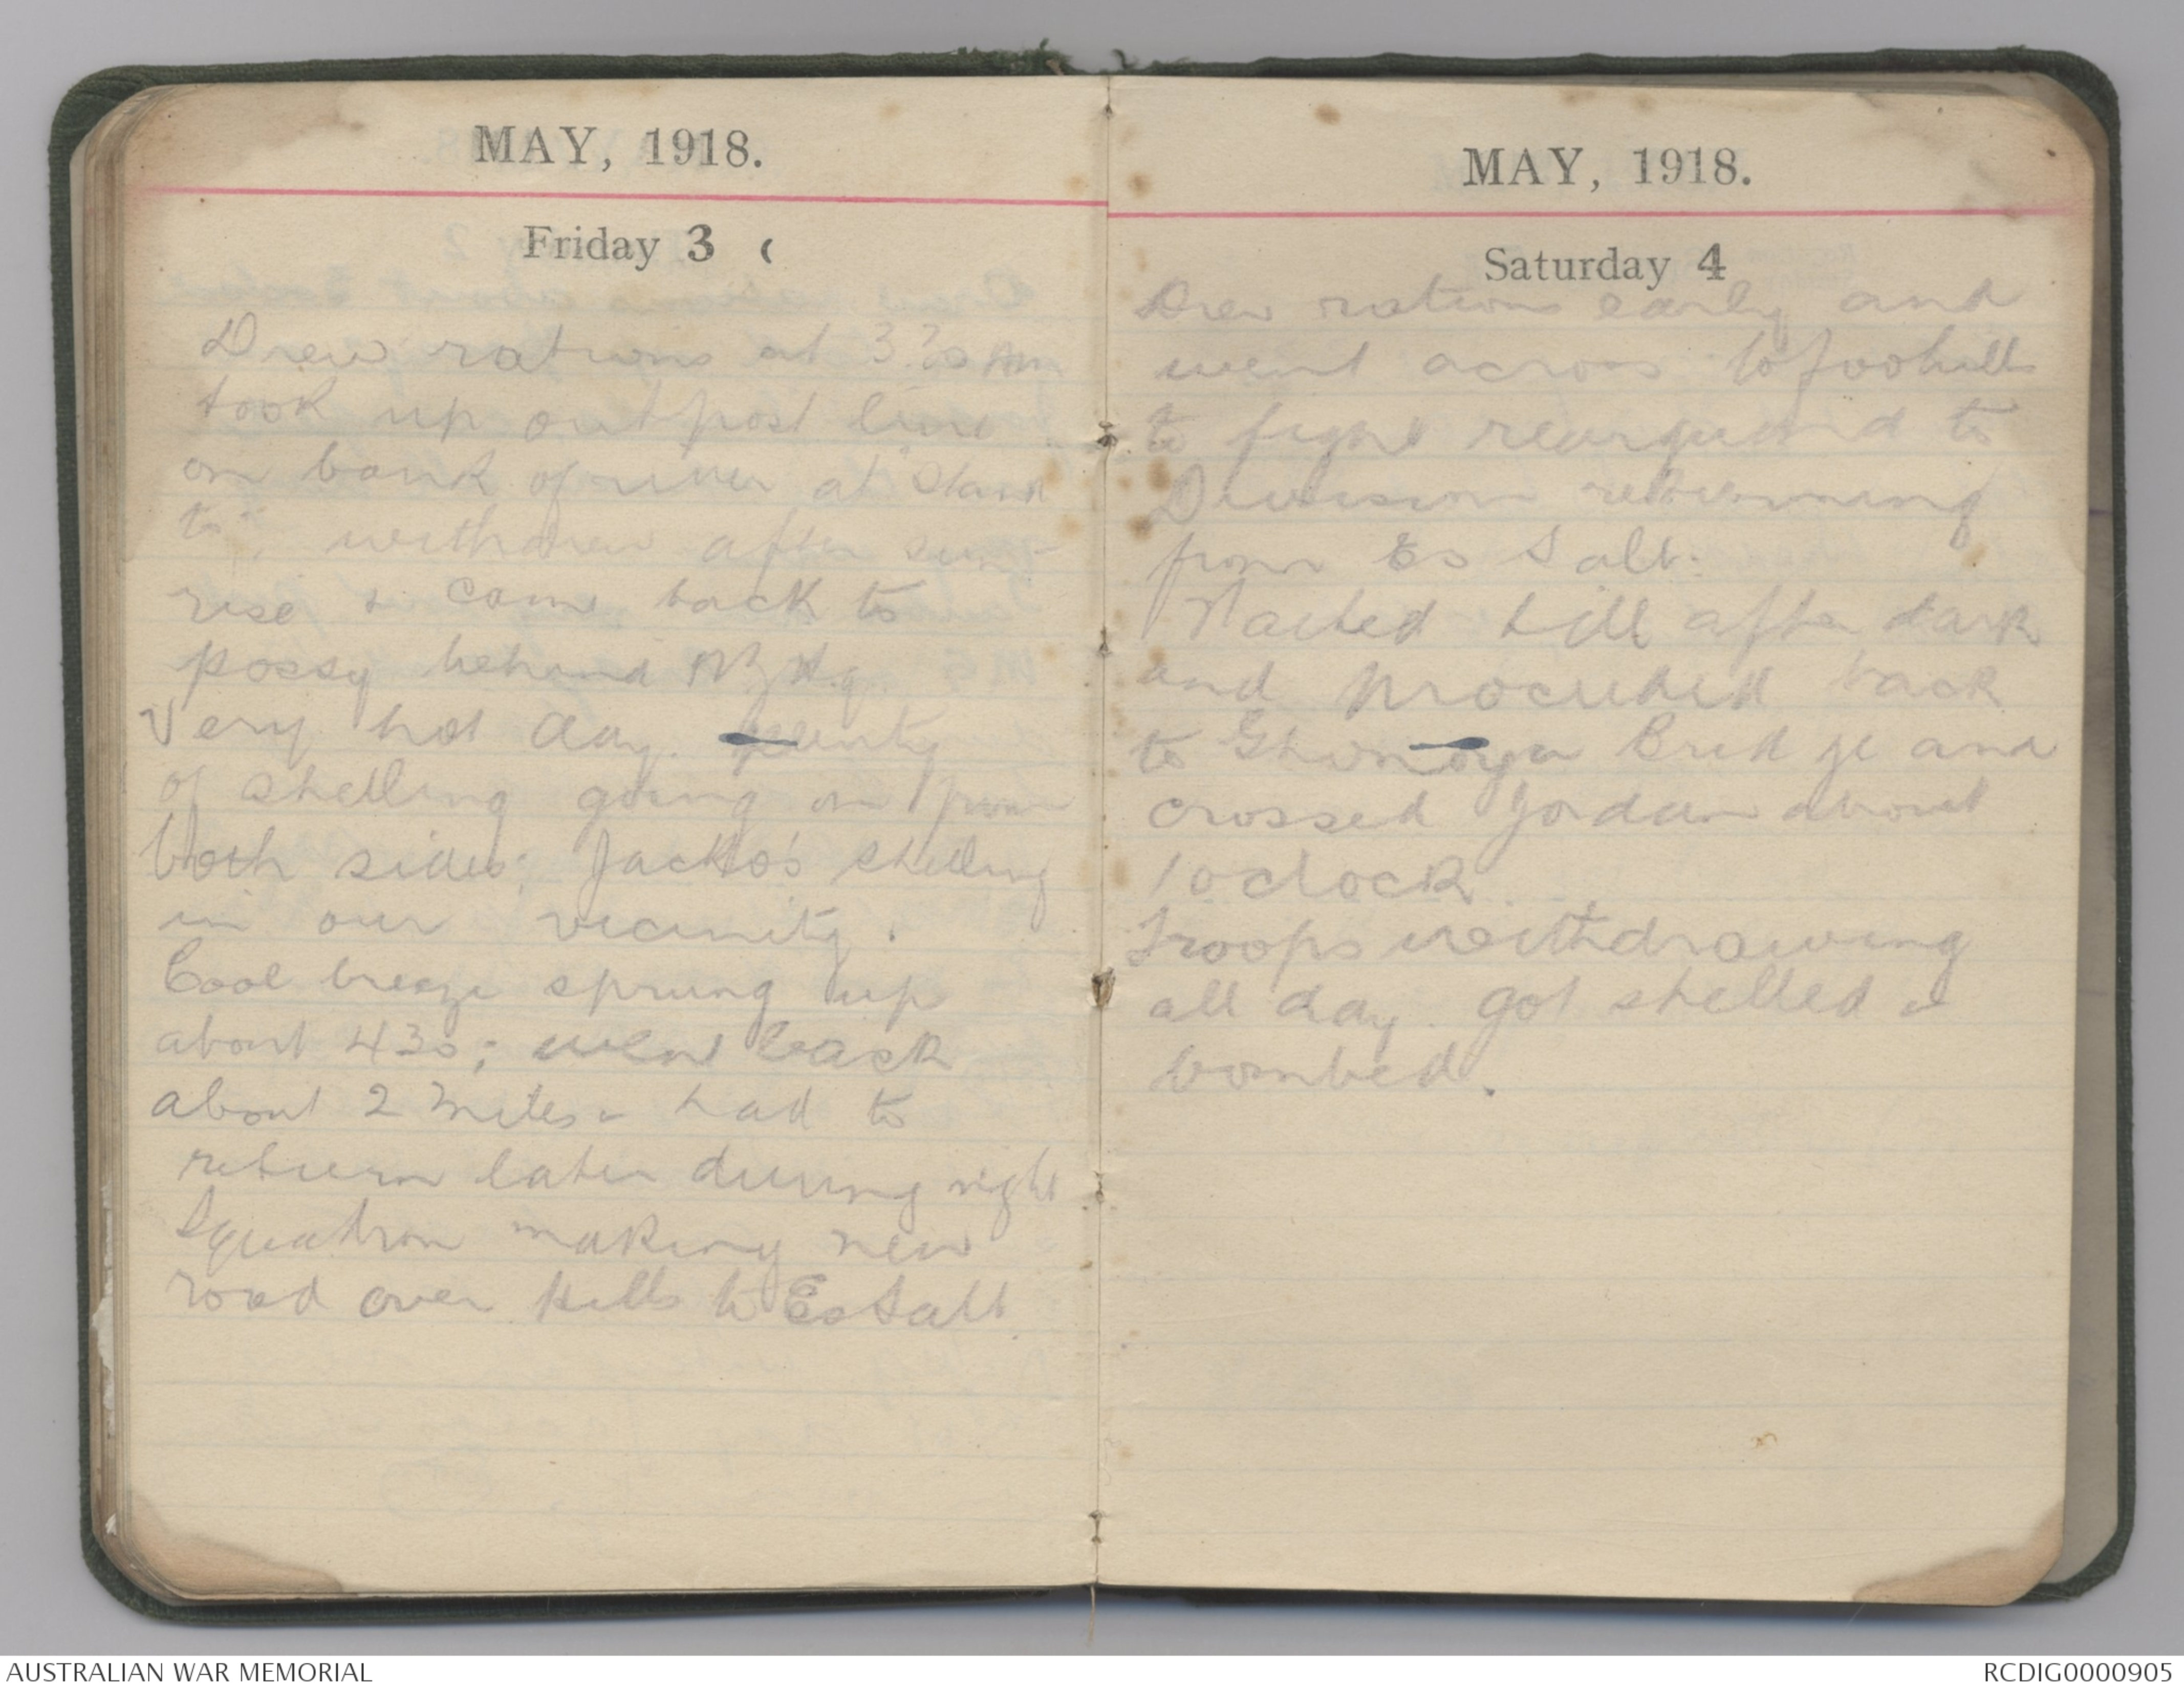 MAY, 1918.
Friday 3
Drew rations at 3.30 AM
took up outpost line
on bank of river at "Stand
to", withdrew after sun-
rise & came back to
possy behind NZ Hq.
Very hot day. plenty
of shelling going on from
both sides; Jacko's shelling
in our vicinity.
Cool breeze sprung up
about 430; went back
about 2 miles & had to
return later during night
Squadron making new
road over hills to Es Salt
MAY, 1918.
Saturday 4
Drew rations early and
went across to foohills
to fight rearguard to
Division returning
from Es Salt.
Waited till after dark
and proceeded back
to Bridge and
crossed Jordan about
1 oclock.
Troops withdrawing
all day. got shelled &
bombed.
AUSTRALIAN WAR MEMORIAL
RCDIG0000905